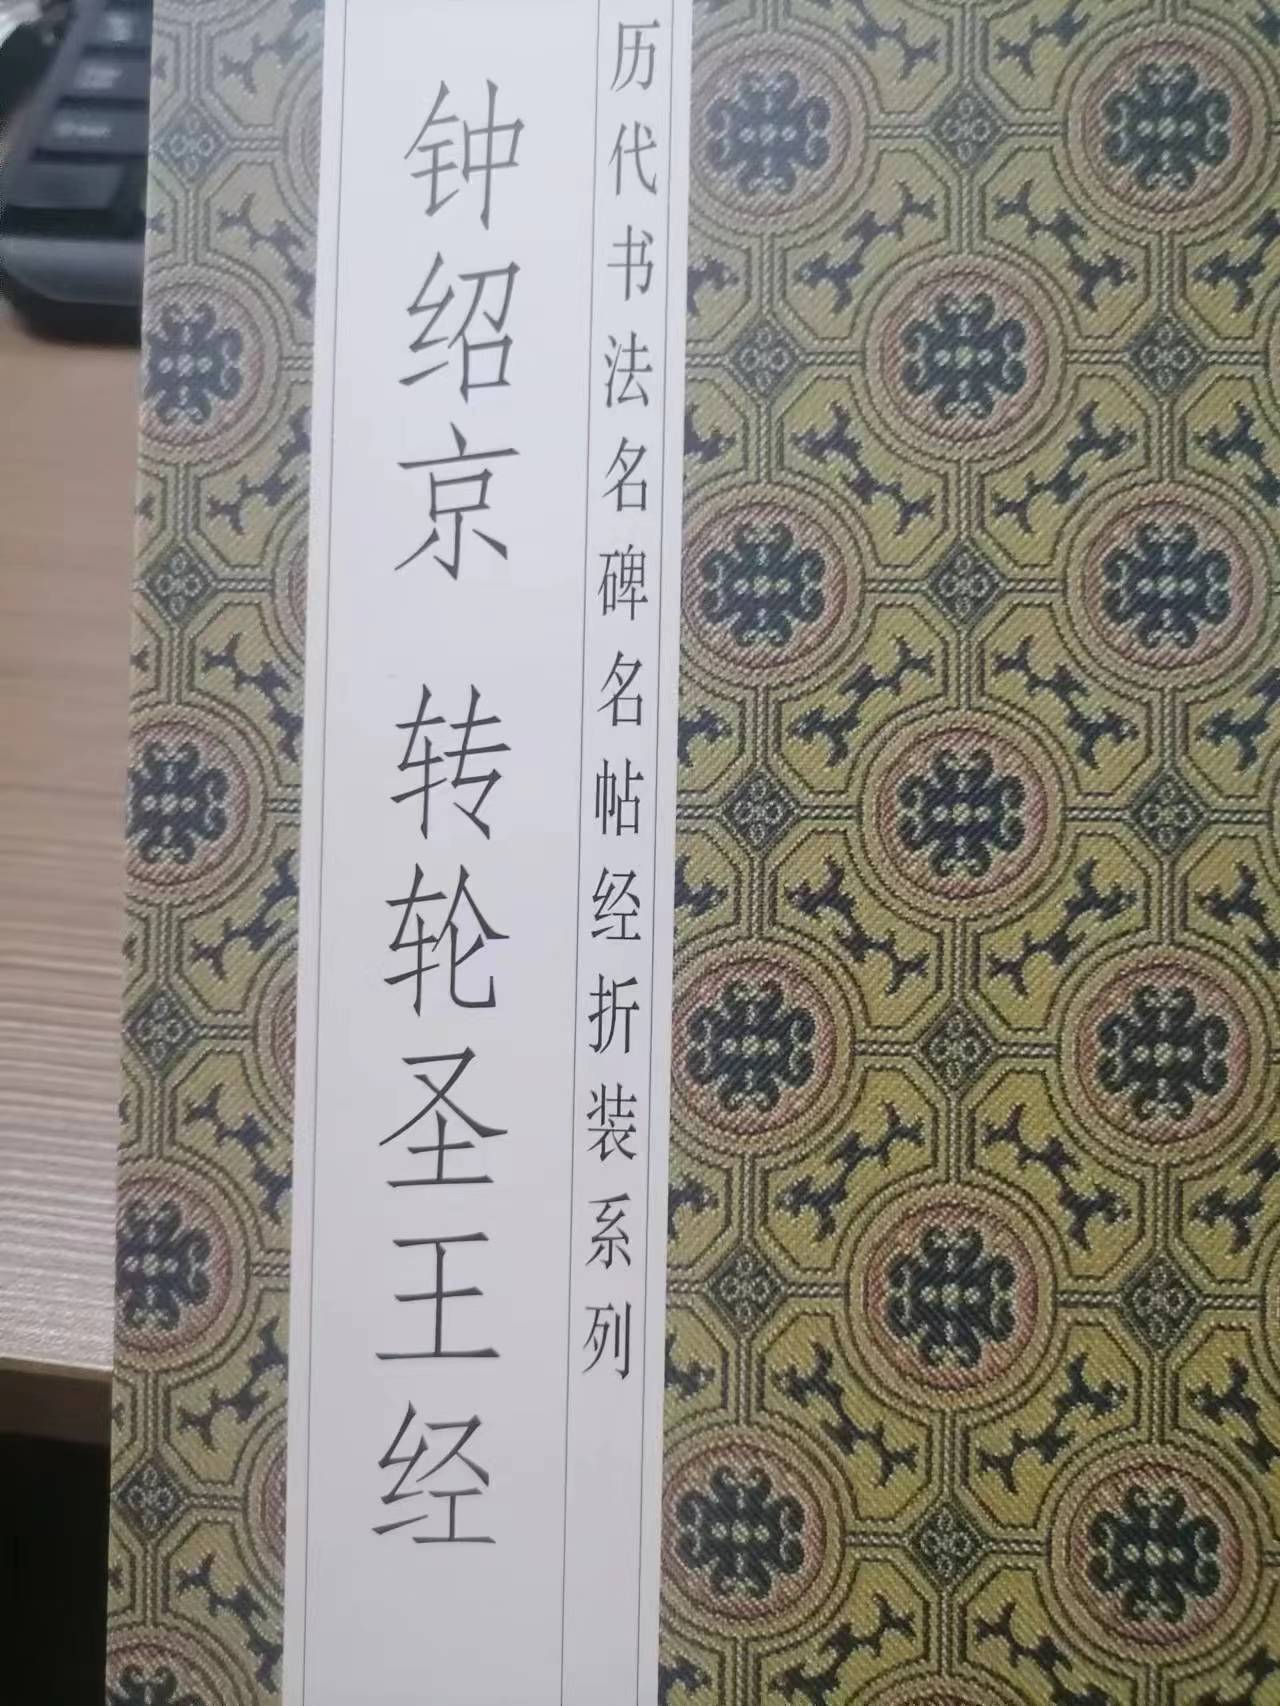 历代书法名碑名帖经折装系列
钟绍京 转轮圣王经